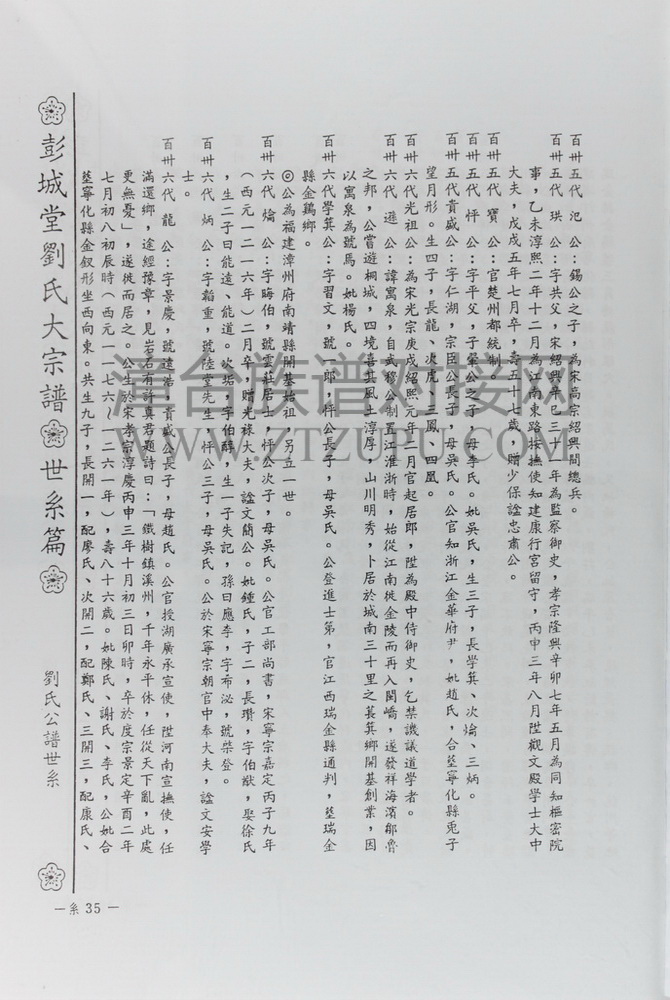 百卅五代　汜　公：錫公之子，為宋高宗紹興間總兵。
百卅五代　珙　公：字共父，宋紹興辛巳三十一年為監察御史，孝宗隆興辛卯七年五月為同知樞密院
事，乙未淳熙二年十二月為南東路按撫使知建康行宮留守，丙申三年八月陞觀文殿學士大中
大夫，戊戌五年七月卒，壽五十七歲，贈少保諡忠肅公。
百卅五代　寶　公：官楚州都統制。
百卅五代　怦　公：字平父，子翬公之子，母李氏。妣吳氏，生三子，長學箕、次爚、三炳。
百卅五代貴盛公：字仁湖，宗臣公長子，母吳氏。公官知浙江金華府尹，妣趙氏，合塟寧化縣兎子
望月形。生四子，長龍、次虎、三鳳、四凰。
百卅六代光祖公：為宋光宗庚戌紹熙元年二月官起居郎，陞為殿中侍御史，乞禁譏議道學者。
百卅六代　遜　公：諱寓泉，自武穆公制置江淮浙時，始從江南徙金陵而再入閩嶠，遂發祥海濱鄒魯
之邦，公嘗遊桐城，四境喜其風土淳厚，山川明秀，卜居於城南三十里之萁箕鄉開基創業，因
以寓泉為號焉。妣楊氏。
百卅六代學箕公：字習文，號一郎，怦公長子，母吳氏。公登進士第，官江西瑞金縣通判，塟瑞金
縣金鷄鄉。
◎公為福建漳州府南靖縣開基始祖，另立一世。
百卅六代　爚　公：字晦伯，號雲莊居士，怦公次子，母吳氏。公官工部尚書，宋寧宗嘉定丙子九年
（西元一二一六年）二月卒，贈光祿大夫，諡文簡公。妣鍾氏，子二，長瓚，字伯猷，娶徐氏
，生二子曰能遠、能道。次垢，字伯醇，生一子失記，孫曰應李，字布泌，號榮登。
百卅六代　炳　公：字韜重，號陸堂先生，怦公三子，母吳氏。公於宋寧宗朝官中奉大夫，諡文安學
士。
百卅六代　龍　公：字景慶，號遠浩，貴盛公長子，母趙氏。公官授湖廣承宣使，陞河南宣撫使，任
滿還鄉，途經豫章，見岩石有許真君題詩曰：「鐵樹鎮溪州，千年永平休，任從天下亂，此處
更無憂」，遂徙而居之。公生於宋孝宗淳慶丙申三年十月初三日卯時，卒於度宗景定辛酉二年
七月初八初辰時（西元一一七六～一二六一年），壽八十六歲。妣陳氏、謝氏、李氏，公妣合
塟寧化縣金釵形坐西向東。共生九子，長開一，配廖氏、次開二，配鄭氏、三開三，配康氏、
彭城堂劉氏大宗譜　世系篇　劉氏公譜世系
—系 35—
清台族谱对接网
WWW.ZTZUPU.COM